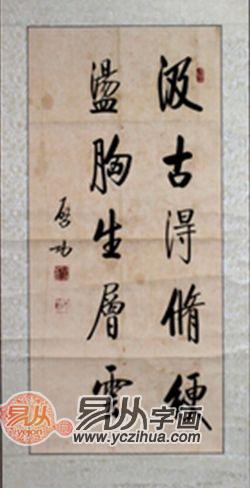 汲古得脩綆
盪胸生層雲
启功
易从
易从字画
www.yczihua.com